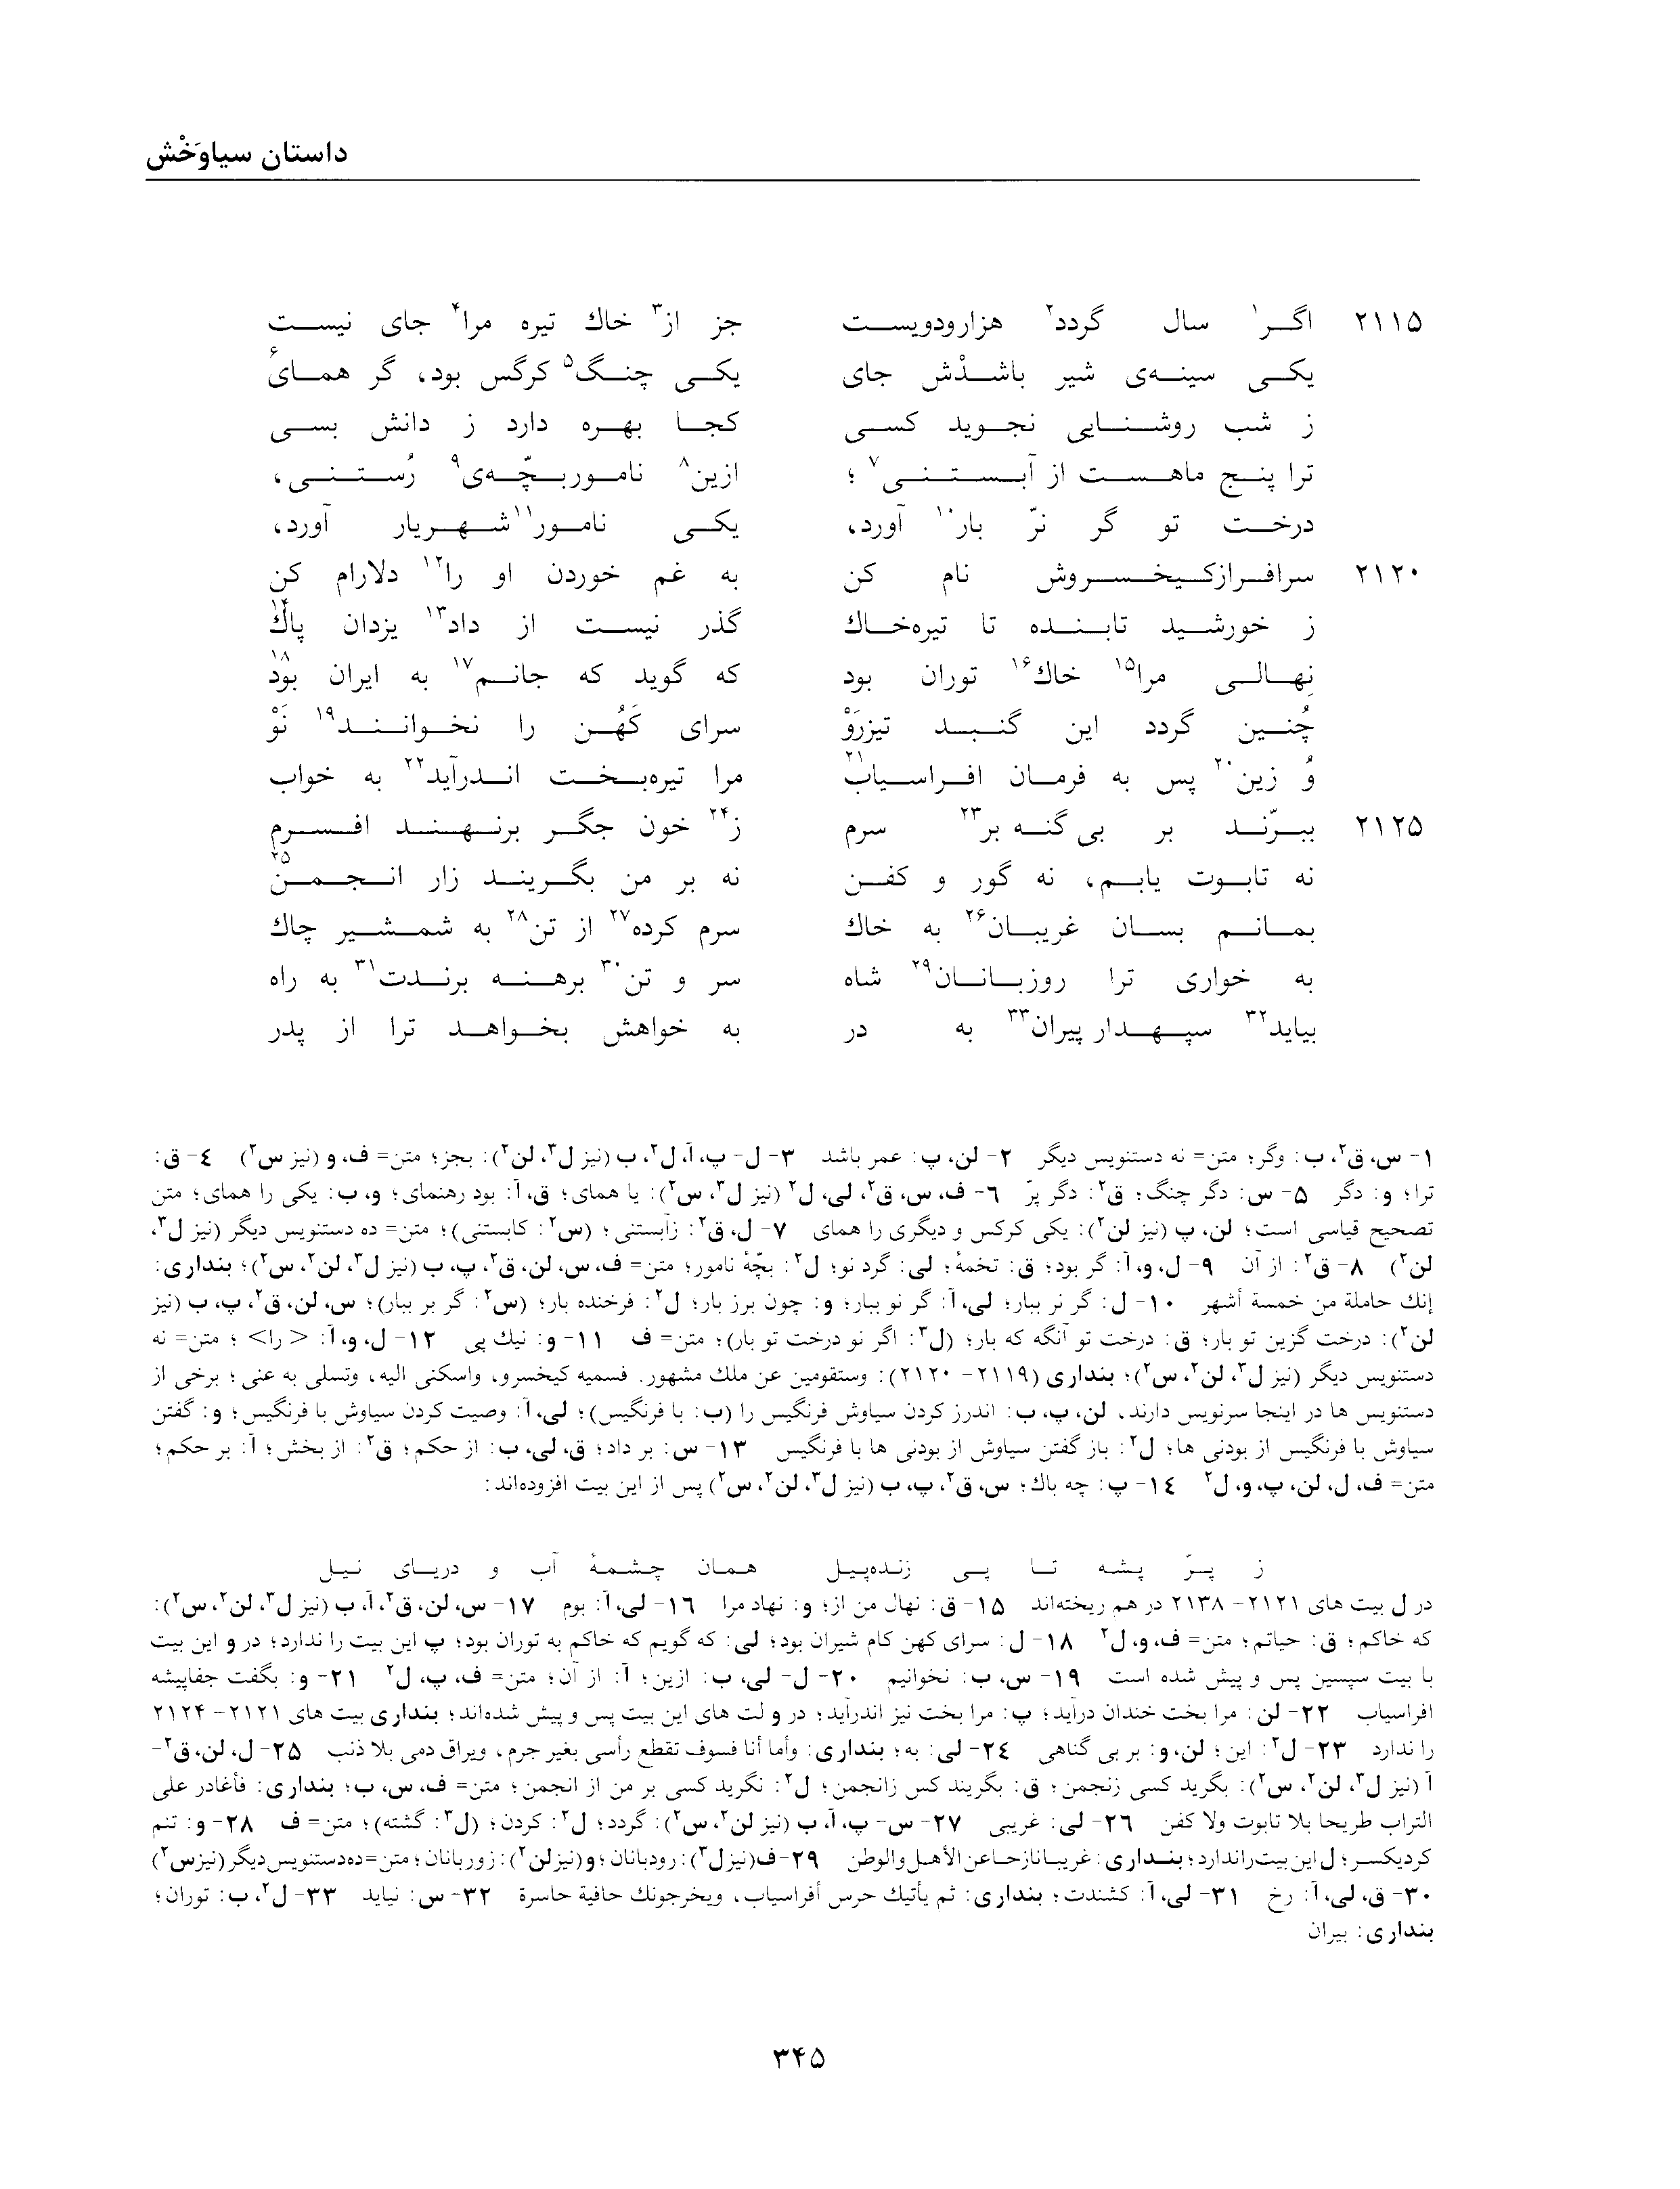 داستان سیاوَخْش
۲۱۱۵ اگر۱ سال گردد۲ هزارودویست جز از۳ خاك تیره مرا۴ جای نیست
یکی سینه‌ی شیر باشدْش جای یکی چنگ۵ کرگس بود، گر همای۶
ز شب روشنایی نجوید کسی کجا بهره دارد ز دانش بسی
ترا پنج ماهست از آبستنی۷ ؛ ازین۸ ناموربچّه‌ی۹ رُستنی،
درخت تو گر نرّ بار۱۰ آورد، یکی نامور۱۱ شهریار آورد،
۲۱۲۰ سرافرازکیخسروش نام کن به غم خوردن او را۱۲ دلارام کن
ز خورشید تابنده تا تیره‌خاك گذر نیست از داد۱۳ یزدان پاك۱۴
نِهالی مرا۱۵ خاك۱۶ توران بود که گوید که جانم۱۷ به ایران بود۱۸
چُنین گردد این گنبد تیزرَوْ سرای کَهُن را نخوانند۱۹ نَوْ
وُ زین۲۰ پس به فرمان افراسیاب۲۱ مرا تیره‌بخت اندرآید۲۲ به خواب
۲۱۲۵ ببرّند بر بی گنه بر۲۳ سرم ز۲۴ خون جگر برنهند افسرم
نه تابوت یابم، نه گور و کفن نه بر من بگریند زار انجمن۲۵
بمانم بسان غریبان۲۶ به خاك سرم کرده۲۷ از تن۲۸ به شمشیر چاك
به خواری ترا روزبانان۲۹ شاه سر و تن۳۰ برهنه برندت۳۱ به راه
بیاید۳۲ سپهدار پیران۳۳ به در به خواهش بخواهد ترا از پدر
۱- س، ق۲، ب: وگر؛ متن= نه دستنویس دیگر ۲- لن، پ: عمر باشد ۳- ل- پ، آ، ل۲، ب (نیز ل۳، لن۲): بجز؛ متن= ف، و (نیز س۲) ٤- ق:
ترا؛ و: دگر ۵- س: دگر چنگ؛ ق۲: دگر پرّ ٦- ف، س، ق۲، لی، ل۲ (نیز ل۳، س۲): یا همای؛ ق، آ: بود رهنمای؛ و، ب: یکی را همای؛ متن
تصحیح قیاسی است؛ لن، پ (نیز لن۲): یکی کرکس و دیگری را همای ۷- ل، ق۲: زآبستنی؛ (س۲: کابستنی)؛ متن= ده دستنویس دیگر (نیز ل۳،
لن۲) ۸- ق۲: از آن ۹- ل، و، آ: گر بود؛ ق: تخمهٔ؛ لی: گرد نو؛ ل۲: بچّهٔ نامور؛ متن= ف، س، لن، ق۲، پ، ب (نیز ل۳، لن۲، س۲)؛ بنداری:
إنك حاملة من خمسة أشهر ۱۰- ل: گر نر ببار؛ لی، آ: گر نو ببار؛ و: چون برز بار؛ ل۲: فرخنده بار؛ (س۲: گر بر ببار)؛ س، لن، ق۲، پ، ب (نیز
لن۲): درخت گزین تو بار؛ ق: درخت تو آنگه که بار؛ (ل۳: اگر نو درخت تو بار)؛ متن= ف ۱۱- و: نیك پی ۱۲- ل، و، آ: < را> ؛ متن= نه
دستنویس دیگر (نیز ل۳، لن۲، س۲)؛ بنداری (۲۱۱۹- ۲۱۲۰): وستقومین عن ملك مشهور. فسمیه کیخسرو، واسکنی الیه، وتسلی به عنی؛ برخی از
دستنویس ها در اینجا سرنویس دارند، لن، پ، ب: اندرز کردن سیاوش فرنگیس را (ب: با فرنگیس)؛ لی، آ: وصیت کردن سیاوش با فرنگیس؛ و: گفتن
سیاوش با فرنگیس از بودنی ها؛ ل۲: باز گفتن سیاوش از بودنی ها با فرنگیس ۱۳- س: بر داد؛ ق، لی، ب: از حکم؛ ق۲: از بخش؛ آ: بر حکم؛
متن= ف، ل، لن، پ، و، ل۲ ۱٤- پ: چه باك؛ س، ق۲، پ، ب (نیز ل۳، لن۲، س۲) پس از این بیت افزوده‌اند:
ز پرّ پشه تا پی زنده‌پیل همان چشمهٔ آب و دریای نیل
در ل بیت های ۲۱۲۱- ۲۱۳۸ در هم ریخته‌اند ۱۵- ق: نهال من از؛ و: نهاد مرا ۱٦- لی، آ: بوم ۱۷- س، لن، ق۲، آ، ب (نیز ل۳، لن۲، س۲):
که خاکم؛ ق: حیاتم؛ متن= ف، و، ل۲ ۱۸- ل: سرای کهن کام شیران بود؛ لی: که گویم که خاکم به توران بود؛ پ این بیت را ندارد؛ در و این بیت
با بیت سپسین پس و پیش شده است ۱۹- س، ب: نخوانیم ۲۰- ل- لی، ب: ازین؛ آ: از آن؛ متن= ف، پ، ل۲ ۲۱- و: بگفت جفاپیشه
افراسیاب ۲۲- لن: مرا بخت خندان درآید؛ پ: مرا بخت نیز اندرآید؛ در و لت های این بیت پس و پیش شده‌اند؛ بنداری بیت های ۲۱۲۱- ۲۱۲۴
را ندارد ۲۳- ل۲: این؛ لن، و: بر بی گناهی ۲٤- لی: به؛ بنداری: وأما أنا فسوف تقطع رأسی بغیر جرم، ویراق دمی بلا ذنب ۲۵- ل، لن، ق۲-
آ (نیز ل۳، لن۲، س۲): بگرید کسی زنجمن؛ ق: بگریند کس زانجمن؛ ل۲: نگرید کسی بر من از انجمن؛ متن= ف، س، ب؛ بنداری: فأغادر علی
التراب طریحا بلا تابوت ولا کفن ۲٦- لی: غریبی ۲۷- س- پ، آ، ب (نیز لن۲، س۲): گردد؛ ل۲: کردن؛ (ل۳: گشته)؛ متن= ف ۲۸- و: تنم
کردیکسر؛ ل این بیت راندارد؛ بنداری: غریبا نازحا عن الأهل والوطن ۲۹- ف (نیز ل۳): رودبانان؛ و (نیز لن۲): زوربانان؛ متن= ده دستنویس دیگر (نیز س۲)
۳۰- ق، لی، آ: رخ ۳۱- لی، آ: کشندت؛ بنداری: ثم یأتیك حرس أفراسیاب، ویخرجونك حافیة حاسرة ۳۲- س: نیاید ۳۳- ل۲، ب: توران؛
بنداری: بیران
۳۴۵